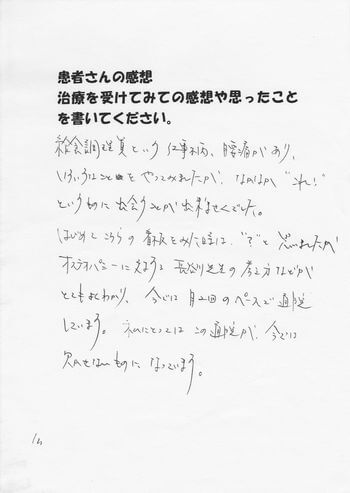 患者さんの感想
治療を受けてみての感想や思ったこと
を書いてください。
給食調理員という仕事柄、腰痛があり、
いろいろなことをやってみましたが、なかなか"これ!"
というものに出会うことが出来ませんでした。
はじめてこちらの看板をみた時は、"?"と思いましたが
オステオパシーに対する長谷川先生の考え方などが
とてもよくわかり、今では月2回のペースで通院
しています。私にとってはこの通院が、今では
欠かせないものになっています。